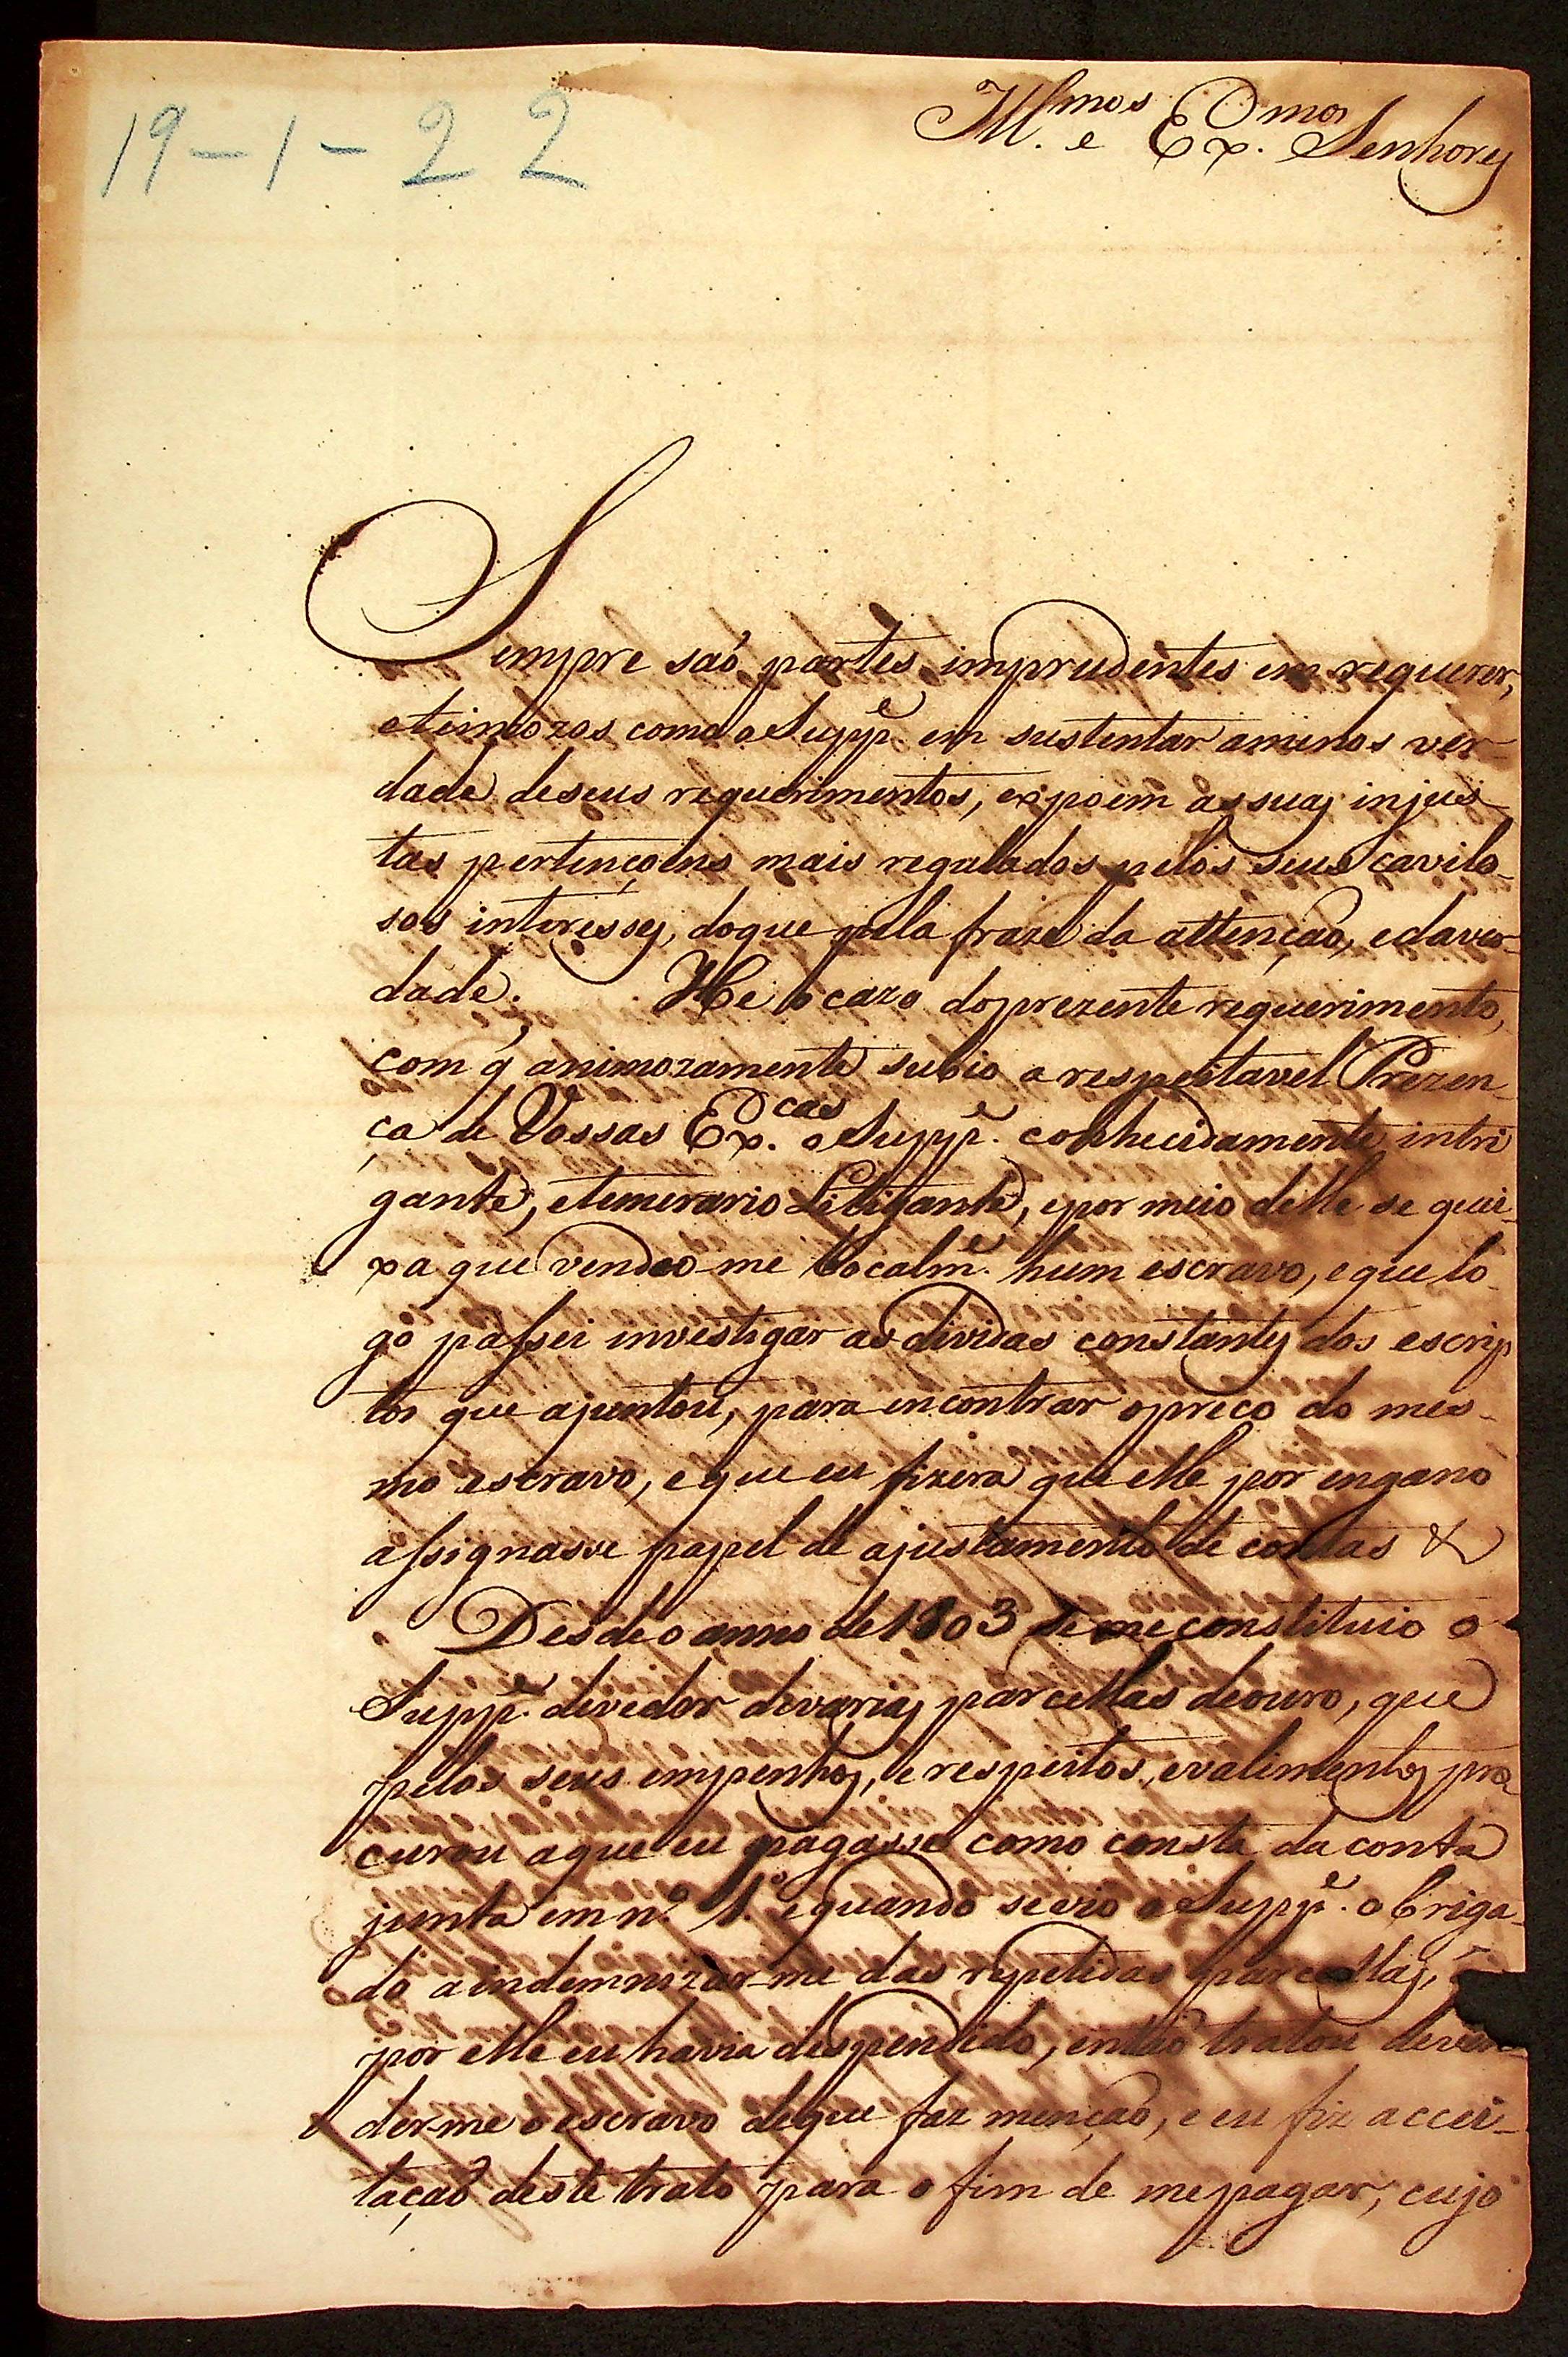 19-1-22
Ill.mos e Ex.mos Senhores
Sempre saó partes imprudentes em requerer,
eteimozos como o Supp.e em sustentar amenos ver-
dade de seus requerimentos, expoem as suas injus-
tas pertençoens mais regulados pelos seus cavilo-
sos interesses, do que pela fraze da attençaõ, e da ver-
dade. He o cazo do prezente requerimento,
com q̃ animozamente subio a respeitavel Prezen-
ça de Vossas Ex.cas o Supp.e conhecidamente intri
gante, etemerario Litigante, epor meio delle se quei-
xa que vendeo-me bocalm.e hum escravo, e que lo-
go passei investigar as dividas constantes dos escrip
tos que ajuntou, para encontrar opreço do mes-
mo escravo, e que eu fizera que elle por engano
assignasse papel de ajustamento de contas &
Desde o anno de 1803 se me constituio o
Supp.e devedor de varias parcellas de ouro, que
pelos seus empenhos, e respeitos, e valimentos pro
curou a que eu pagasse como consta da conta
junta em n.o 1.o e quando se vio o Supp.e obriga-
do a indemnizar-me das repetidas parcellas,
por elle eu havia despendido, entaõ tratou de ven
der-me o escravo de que faz mençaõ, e eu fiz accei-
taçaõ deste trato para o fim de me pagar, cujo